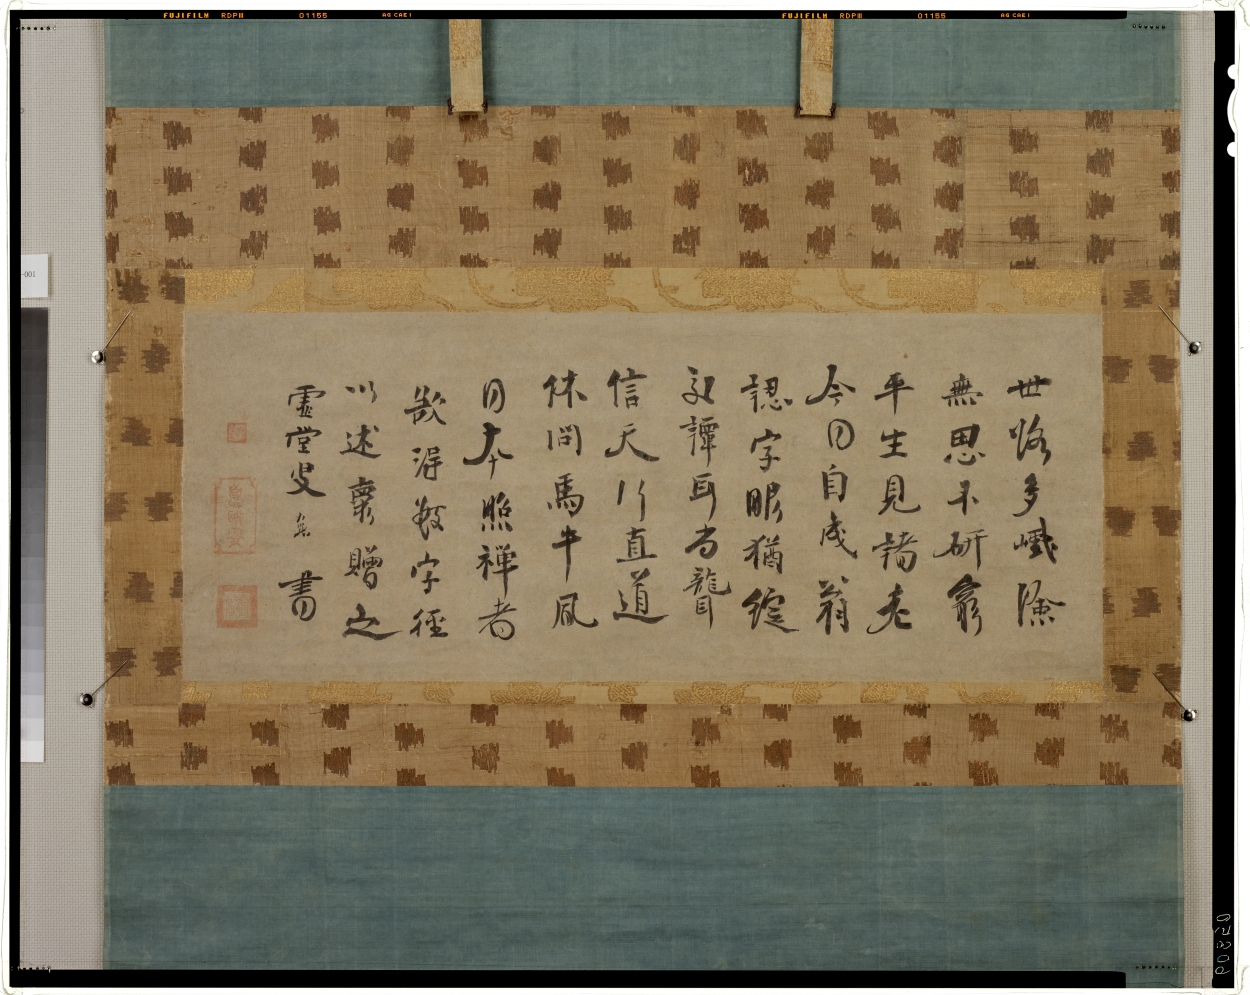 FUJIFILM RDPII 01155
FUJIFILM RDPII 01155
-001
世路多巇險
無思不研窮
平生見諸老
今日自成翁
認字眼猶綻
交譚耳尚聾
信天行直道
休問馬牛風
日本照禅者
欲得数字徑
以述懷贈之
虚堂叟 書